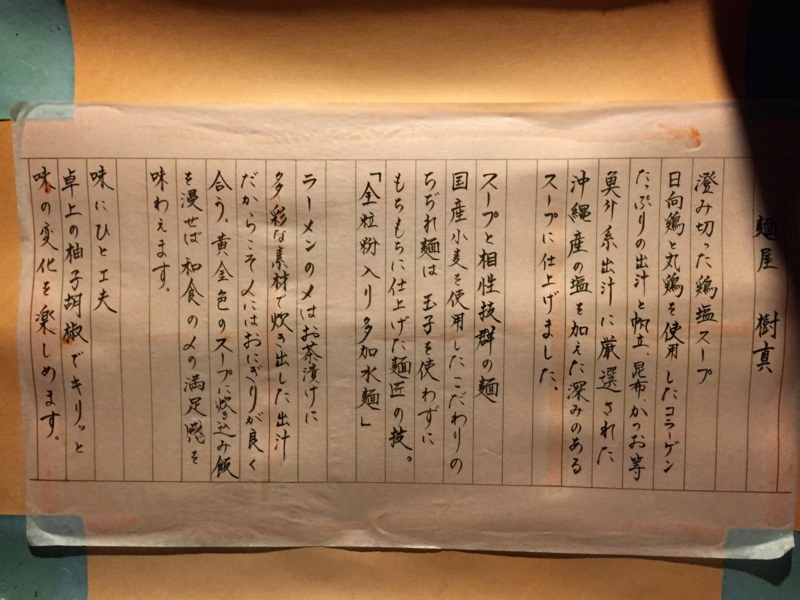 麺屋 樹真
澄み切った鶏塩スープ
日向鶏と丸鶏を使用したコラーゲン
たっぷりの出汁と帆立、昆布、かつお等
魚介系出汁に厳選された
沖縄産の塩を加えた深みのある
スープに仕上げました。
スープと相性抜群の麺
国産小麦を使用したこだわりの
ちぢれ麺は玉子を使わずに
もちもちに仕上げた麺匠の技。
「全粒粉入り多加水麺」
ラーメンの〆はお茶漬けに
多彩な素材で炊き出した出汁
だからこそ〆にはおにぎりが良く
合う。黄金色のスープに炊き込み飯
を浸せば和食の〆の満足感を
味わえます。
味にひと工夫
卓上の柚子胡椒でキリッと
味の変化を楽しめます。